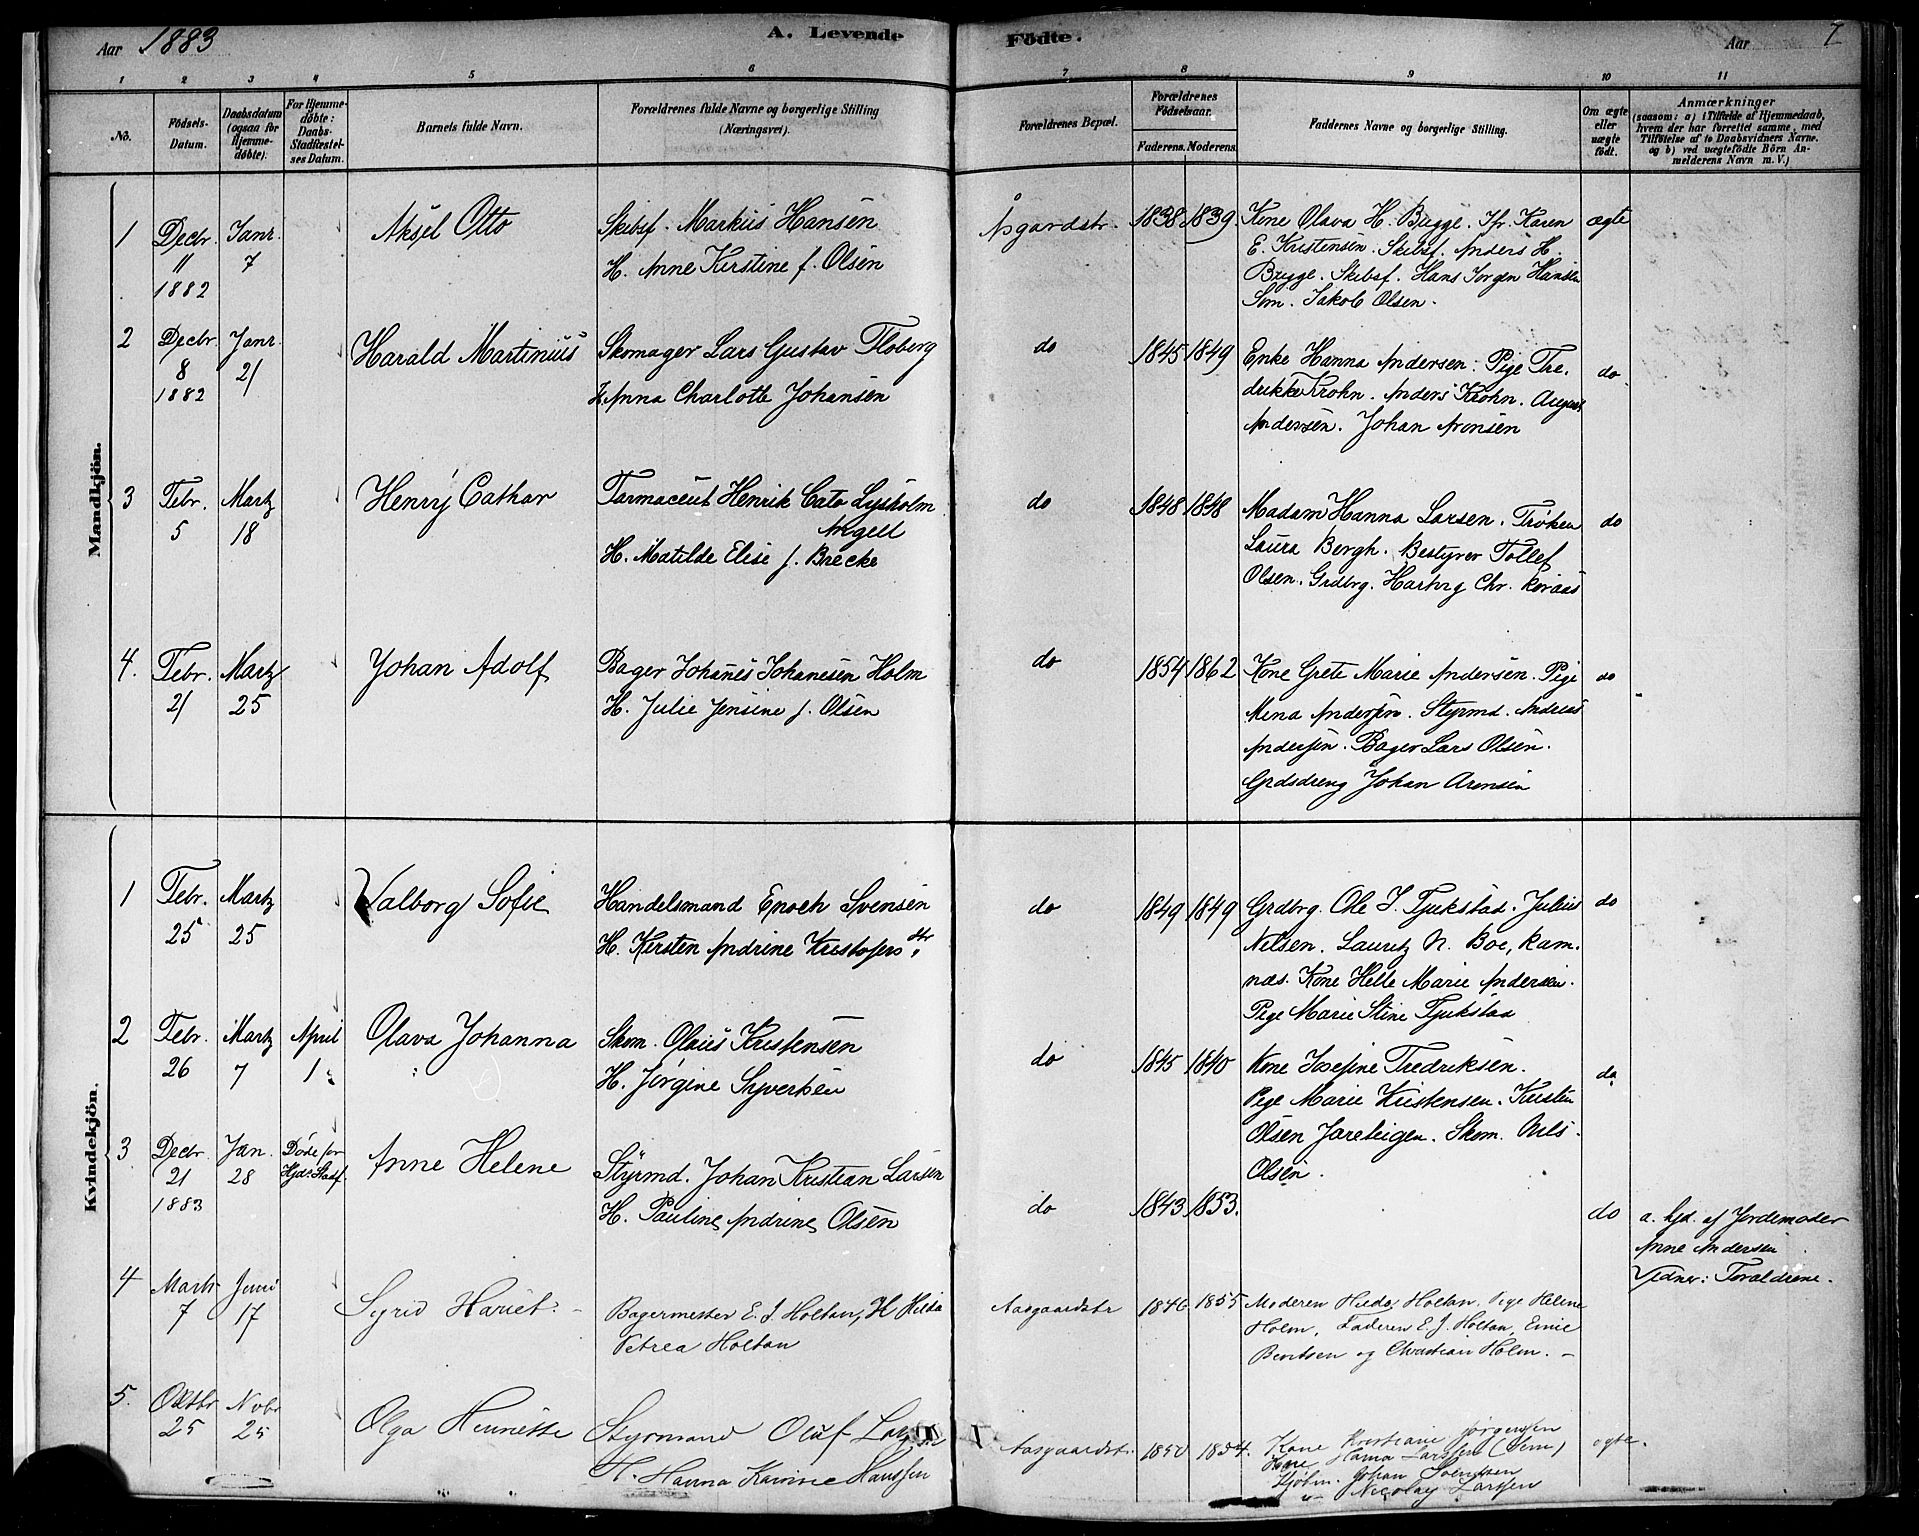 Aar 1883
A. Levende Födte.
Aar 7
1 2 3 4 5 6 7 8 9 10 11
No.
Födsels-
Datum.
Daabsdatum
(ogsaa for
Hjemme-
döbte).
For Hjemme-
döbte:
Daabs-
Stadfæstel-
ses Datum.
Barnets fulde Navn.
Forældrenes fulde Navne og borgerlige Stilling
(Næringsvei).
Forældrenes Bopæl.
Forældrenes
Födselsaar.
Faderens. Moderens.
Faddernes Navne og borgerlige Stilling.
Om ægte
eller
uægte
födt.
Anmærkninger
(saasom: a) i Tilfælde af Hjemmedaab,
hvem der har forrettet samme, med
Tilföielse af to Daabsvidners Navne.
og b) ved uægtefödte Börn An-
melderens Navn m. V.)
Mandkjön.
1
Decbr.
11
1882
Janr.
7
Aksel Otto
Skibsf. Markus Hansen
H. Anne Kirstine f. Olsen
Åsgardstr.
1838
1839.
Kone Olava H. Brygge. Jfr. Karen
E. Kristensen. Skibsf. Anders H.
Brygge. Skibsf. Hans Jørgen Hansen
Søm. Jakob Olsen.
ægte
2
Decbr.
8
1882
Janr.
21
Harald Martinius
Skomager Lars Gustav Floberg
H. Anna Charlotte Johansen
do
1845
1849
Enke Hanna Andersen. Pige Fre-
drikke Krohn. Anders Krohn. August
Andersen. Johan Aronsen
do
3
Febr.
5
Martz
18
Henry Cathar
Farmaceut Henrik Cato Lysholm
Angell
H. Matilde Elise f. Brecke
do
1848
1848
Madam Hanna Larsen. Frøken
Laura Bergh. Bestyrer Tollef
Olsen. Grdbrg. Hartvig Chr. Foraas
do
4.
Febr.
21
Martz
25
Johan Adolf
Bager Johanes Johanesen Holm
H. Julie Jensine f. Olsen
do
1854
1862
Kone Grete Marie Andersen. Pige
Mina Andersen. Styrmd. Andreas
Andersen. Bager Lars Olsen.
Grdsdreng Johan Aronsen
do
Kvindekjön.
1
Febr.
25
Martz
25
Valborg Sofie
Handelsmand Enoch Svensen
H. Kirsten Andrine Kristofers dtr.
do
1849
1849
Grdbrg. Ole J. Fjukstad. Julius
Nilsen. Lauritz N. Boe, Ram-
næs. Kone Helle Marie Andersen.
Pige Marie Stine Fjukstad
do
2
Febr.
26
Martz
7
April
1
Olava Johanna
Skom. Olaus Kristensen
H. Jørgine Syvertsen
do
1845
1840
Kone Josefine Fredriksen.
Pige Marie Kristensen. Kirsten
Olsen Jareteigen. Skom. Nils
Olsen.
do
3
Decbr.
21
1883
Jan.
28
Døde før
Hjd. Stadf.
Anne Helene
Styrmd. Johan Kristian Larsen
H. Pauline Andrine Olsen
do
1843
1853.
do
a. hjd. af Jordemoder
Anne Andersen
Vidner: Foraldrene.
4
Marts
7
Juni
17
Sigrid Hariet.
Bagermester E. J. Holtan, H. Hilda
Petrea Holtan
Aasgaardstr
1846
1855
Moderen Hilda Holtan. Pige Helene
Holm. Faderen E. J. Holtan, Emil
Berntsen og Christian Holm.
5.
Oktbr
25
Novbr
25
Olga Henriette
Styrmand Oluf Larssen
H. Hanna Karine Hanssen
Aasgaardstr.
1850
1854.
Kone Kristiane Jørgensen
Kone Hanna Larssen (Sem)
Kjøbm. Johan Svendsen
" Nicolay Larssen
ægte.